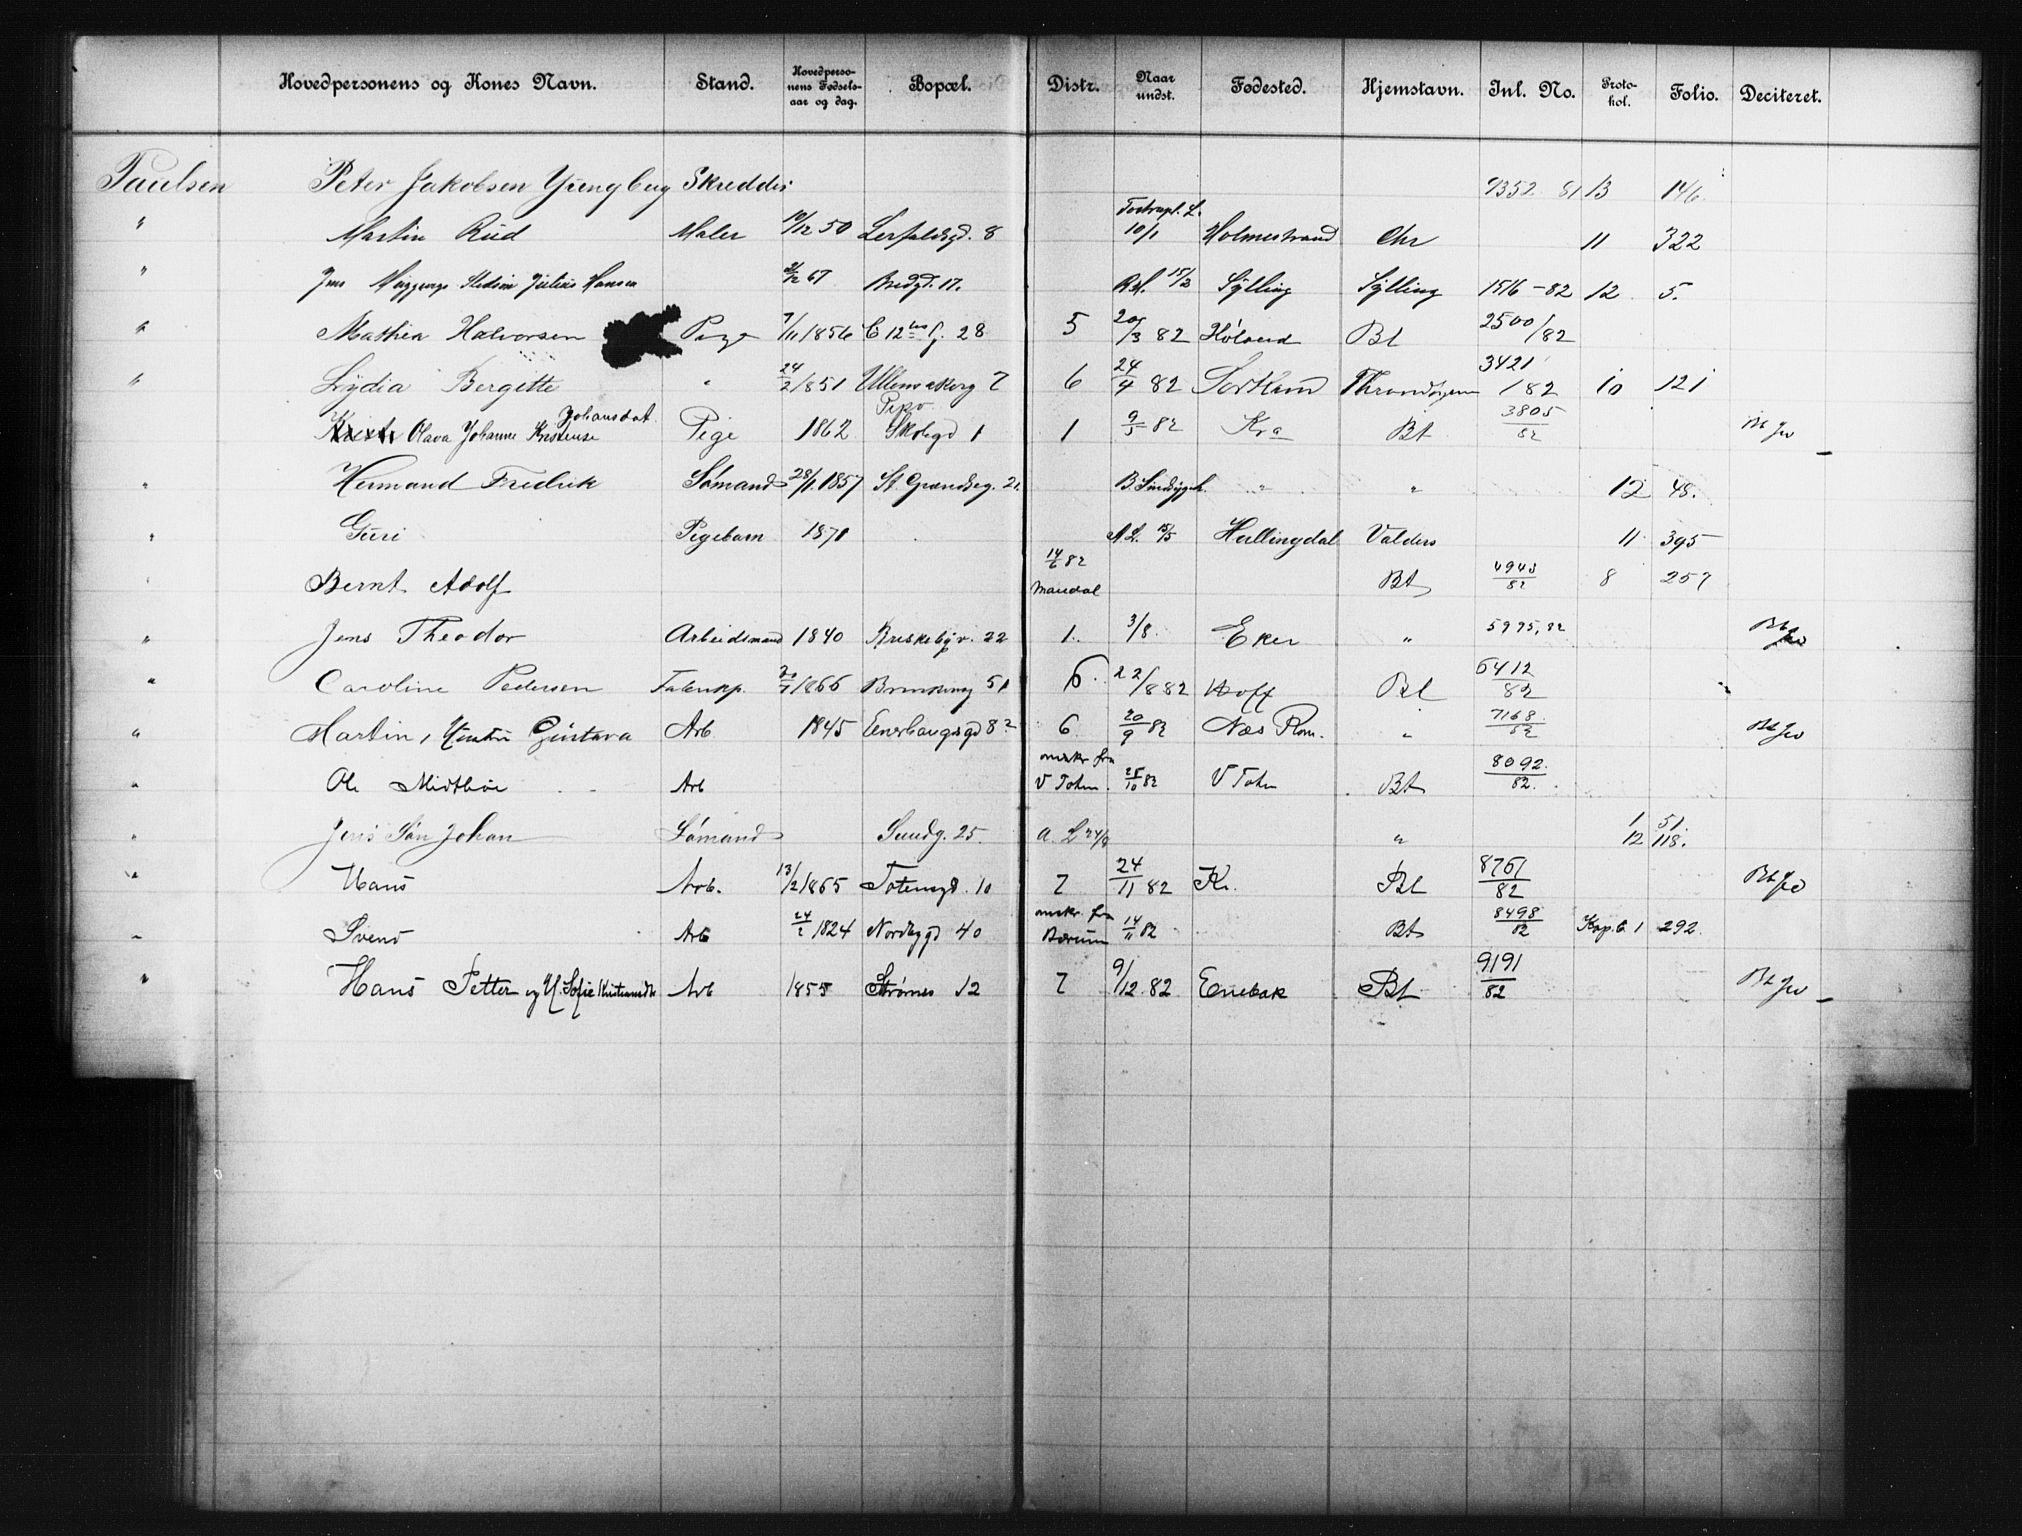 Hovedpersonens og Kones Navn. Stand. Hovedpersonens Fødselsaar og dag. Bopæl. Distr. Naar undst. Fødested. Hjemstavn. Inl. No. Protokol. Folio. Deciteret.
Paulsen Peter Jakobsen Skredder 9352 81 13 146
" Martin Rud Maler 10/12 50 8 10/1 Holmestrand Chr 11 322
" Jens Julius Hansen 67 Bredgd. 17. 15/2 Sylling Sylling 1516-82 12 5.
" Mathea Halvorsen Pige 7/11 1856 28 5 20/3 82 Høland Bt 2500/82
" Lydia Bergitte " 24/2 1851 Ullensakerg 7 6 24/4 82 Sortland Throndhjem 3421/82 10 121
Johansdat.
Olava Johanne Pige 1862 Pipv. Skolegd 1 1 9/5 82 Kra Bt 3805/82 Bt Jeo
" Hermand Fredrik Sømand 28/1 1857 St. Grændseg. 21. " " 12 48.
" Guri Pigebarn 1871 A.L. 15/5 Hallingdal Valders 11 395
" Bernt Adolf 14/6 82 Mandal Bt 4943/82 8 257
" Jens Theodor Arbeidsmand 1840 Briskebyv. 22 1. 3/8 Eker " 5975,82 Bt Jeo
" Caroline Pedersen Fabrikp. 1866 51 6. 22/8 82 Hoff Bt 6412/82
" Martin, Gustava Arb 1845 Enerhaugsgd 8 6 20/9 82 Næs Rom. " 7168/82 Bt Jeo
" Ole Arb omskr. fra V Toten. 25/10 82 V Toten Bt 8092/82.
" Jens Johan Sømand Sundg. 25. A. L 24/8 " 1 51. 12 118.
" Hans Arb. 13/2 1865 Totengd. 10 7 24/11 82 Kr. Bt 8761/82 Bt Jeo
" Svend Arb 24/2 1824 Nordbygd 40 omskr. fra Bærum 14/11 82 Bt 8498/82 Kop.b. 1 292
" Hans Petter og H. Sofie Kristiansdtr Arb 1855 Strømsv 12 7 9/12 82 Enebak Bt 9191/82 Bt Jeo